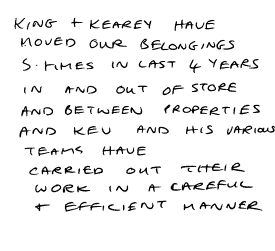 KING + KEAREY HAVE
MOVED OUR BELONGINGS
5. TIMES IN LAST 4 YEARS
IN AND OUT OF STORE
AND BETWEEN PROPERTIES
AND KEV AND HIS VARIOUS
TEAMS HAVE
CARRIED OUT THEIR
WORK IN A CAREFUL
+ EFFICIENT MANNER